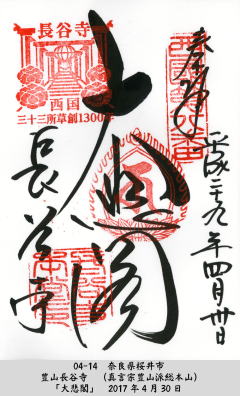 奉拝
平成二九年四月卅日
大悲閣
長谷寺
長谷寺
西国
三十三所草創1300年
04-14 奈良県桜井市
豊山長谷寺 （真言宗豊山派総本山）
「大悲閣」 2017年4月30日